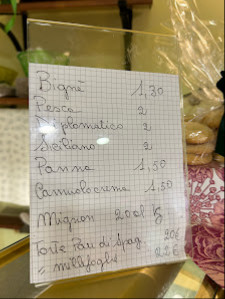 Bignè 1,30
Pesca 2
Diplomatico 2
Siciliano 2
Panna 1,50
Cannolo crema 1,50
Mignon 20 al kg
Torte Pan di Spag. 20€
e millefoglie 22€